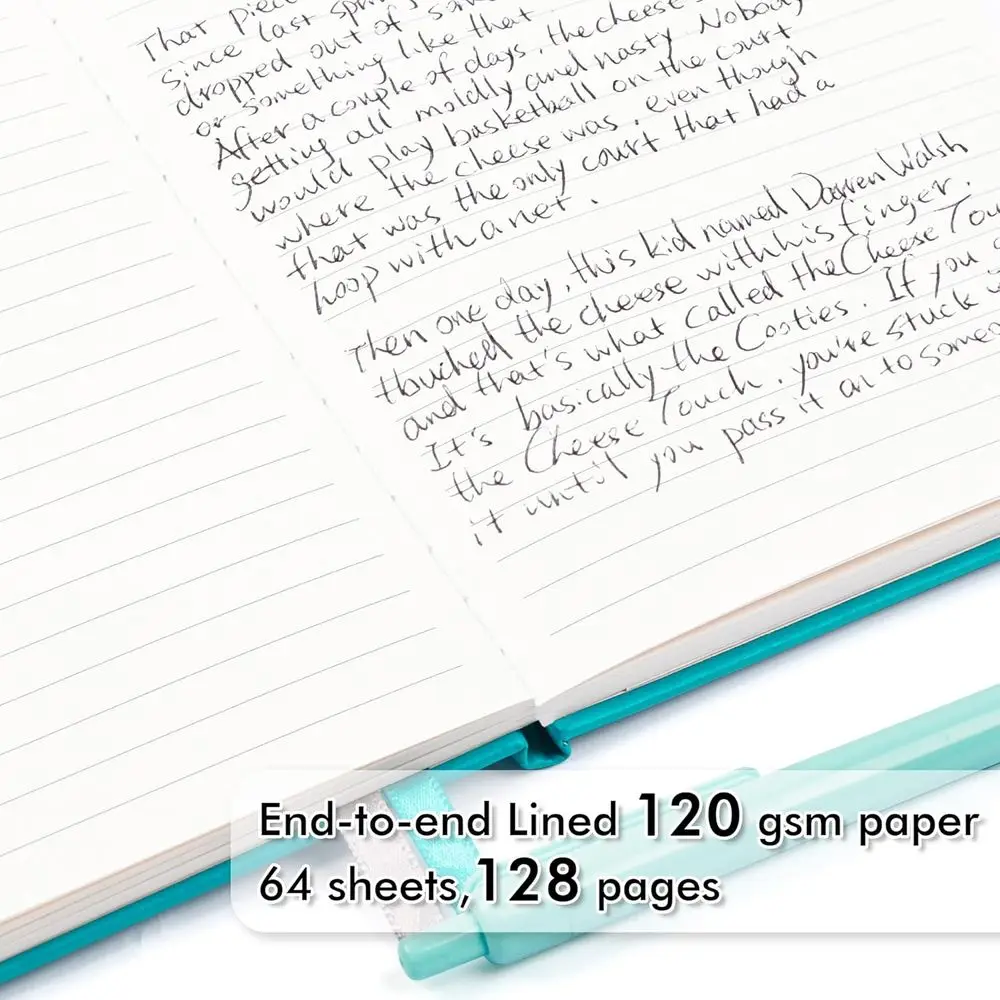 That piec
since last spr
dropped out of som
or something like that
After a couple of days, the cheese
getting all moldly and nasty Nobody
would play basketball on the court
where the cheese was, even though
that was the only court that had a
hoop with a net.
Then one day, this kid named Darren Walsh
thouched the cheese with his finger.
and that's what called the Cheese Tou
It's basically the Cooties. If you g
the Cheese Touch, you're stuck w
it until you pass it on to someo
End-to-end Lined 120 gsm paper
64 sheets,128 pages